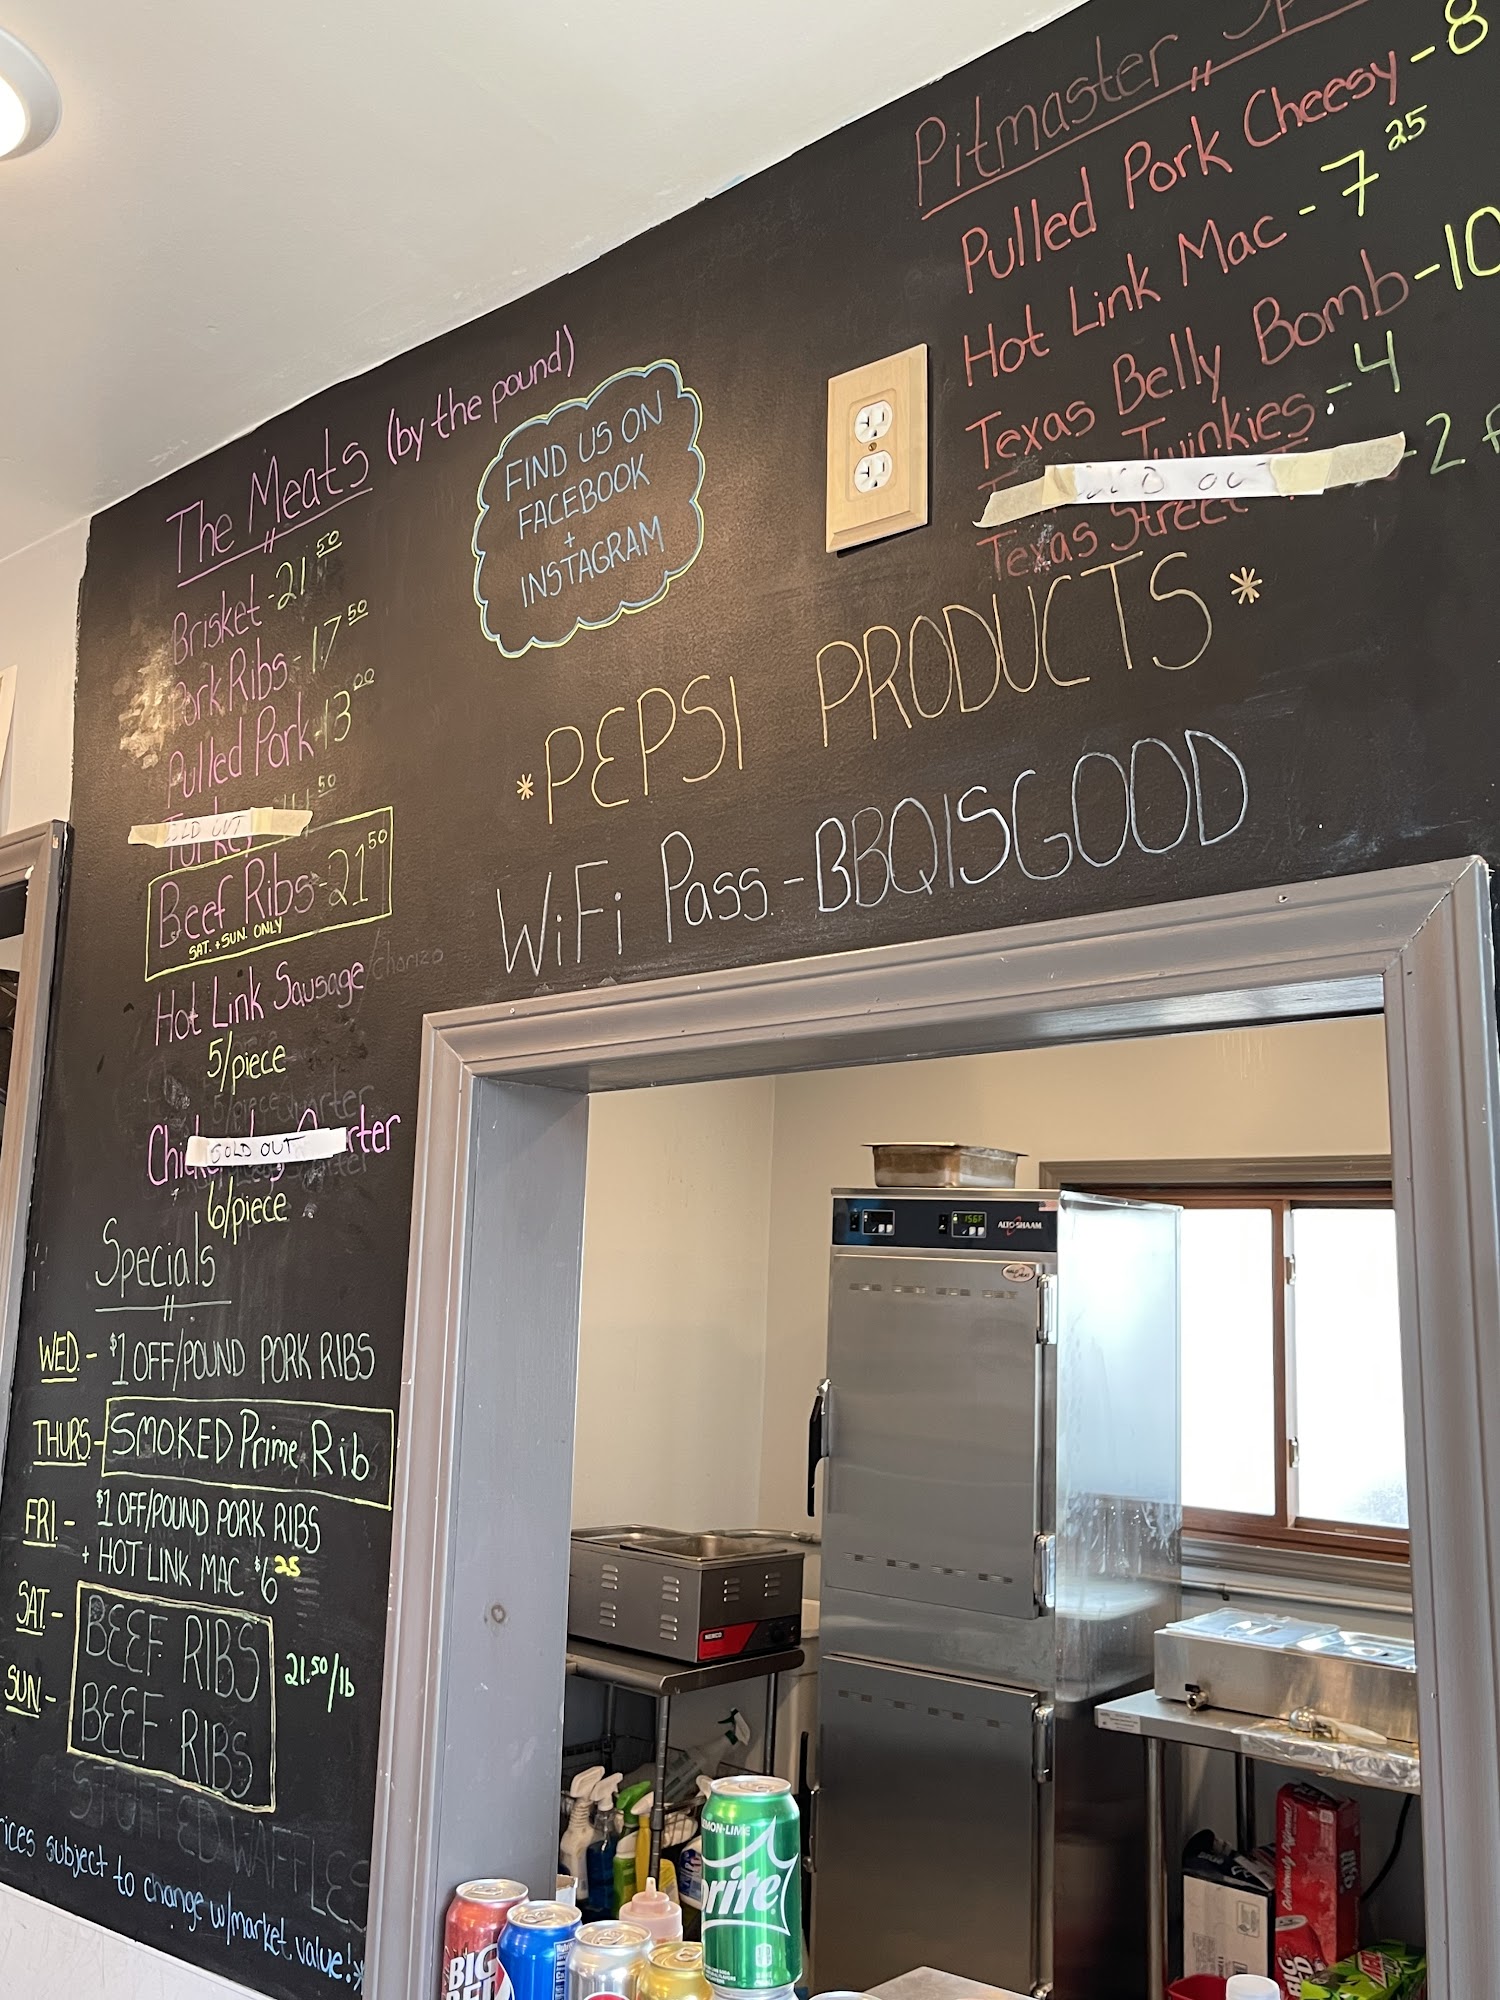 The Meats (by the pound)
Brisket - 21 50
Pork Ribs - 17 50
Pulled Pork - 13 00
Turkey 50
SOLD OUT
Beef Ribs - 21 50
SAT. + SUN. ONLY
Hot Link Sausage/chorizo
5/piece
SOLD OUT
6/piece
Specials
WED. - $1 OFF/POUND PORK RIBS
THURS. - SMOKED Prime Rib
FRI. - $1 OFF/POUND PORK RIBS
+ HOT LINK MAC $6 25
SAT. - BEEF RIBS
21.50/lb
SUN. - BEEF RIBS
STUFFED WAFFLES
subject to change w/market value!*
FIND US ON
FACEBOOK
+
INSTAGRAM
Pitmaster
Pulled Pork Cheesy - 8
Hot Link Mac - 7 25
Texas Belly Bomb - 10
Twinkies - 4
SOLD OUT
Texas Street - 2
*PEPSI PRODUCTS*
WiFi Pass - BBQISGOOD
156F
ALTO-SHAAM
NEMCO
LEMON-LIME
Sprite
BIG
RED